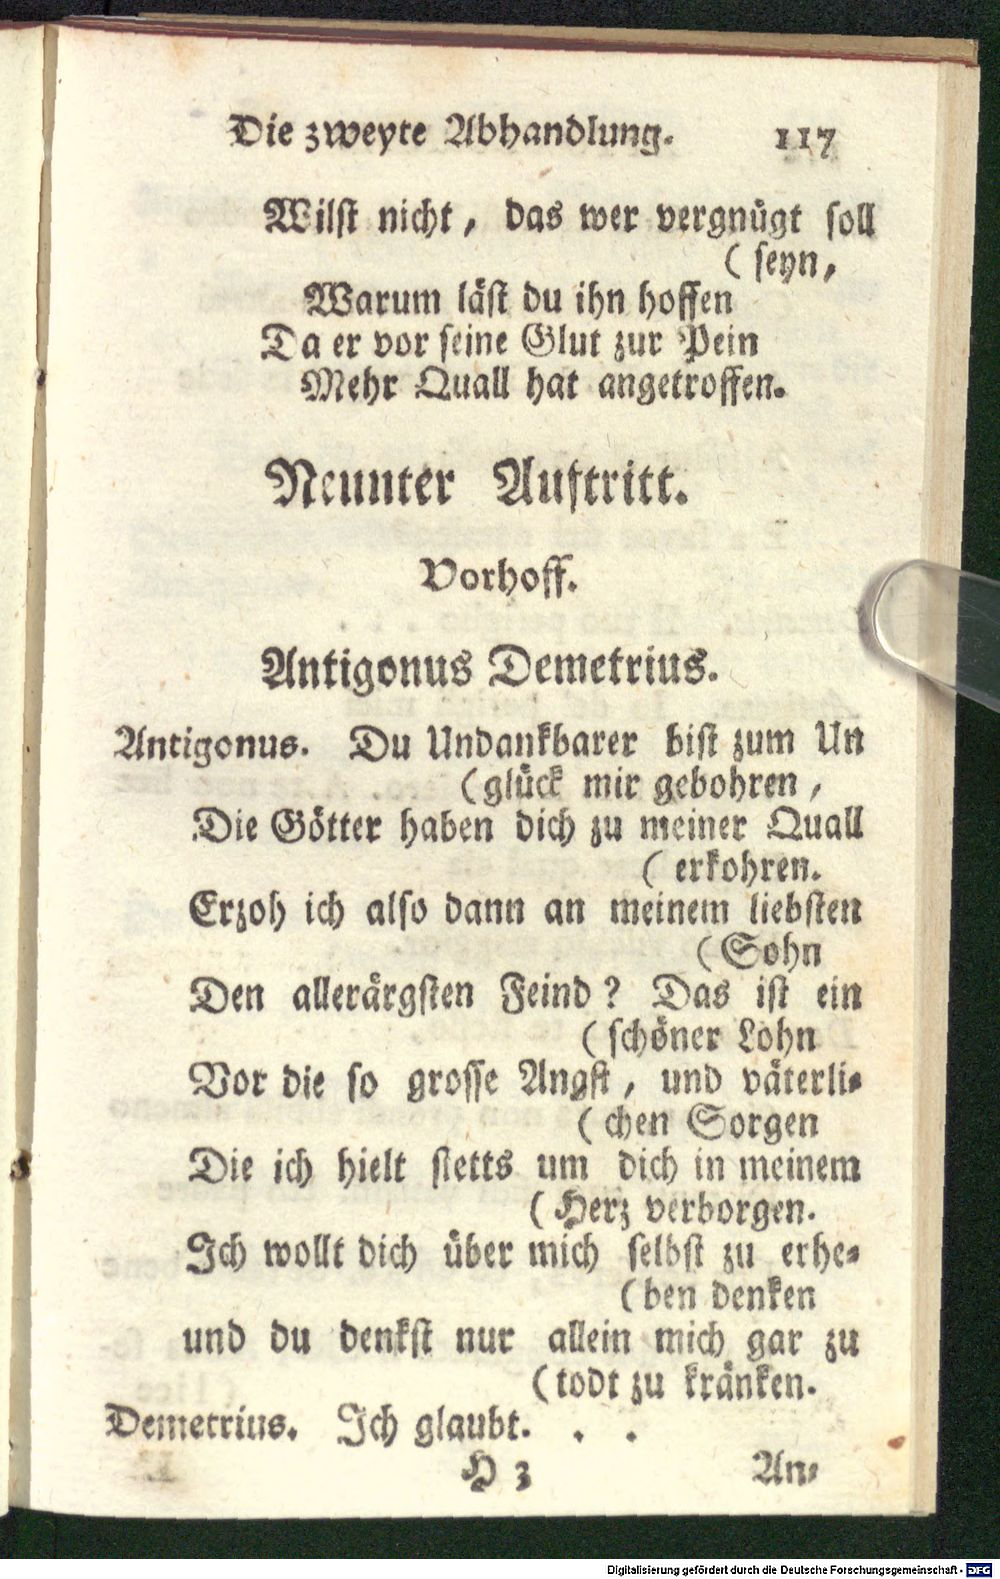 Die zweyte Abhandlung. 117
Wilst nicht, das wer vergnügt soll
(seyn,
Warum läst du ihn hoffen
Da er vor seine Glut zur Pein
Mehr Quall hat angetroffen.
Neunter Auftritt.
Vorhoff.
Antigonus Demetrius.
Antigonus. Du Undankbarer bist zum Un
(glück mir gebohren,
Die Götter haben dich zu meiner Quall
(erkohren.
Erzoh ich also dann an meinem liebsten
(Sohn
Den allerärgsten Feind? Das ist ein
(schöner Lohn
Vor die so grosse Angst, und väterli-
(chen Sorgen
Die ich hielt stetts um dich in meinem
(Herz verborgen.
Ich wollt dich über mich selbst zu erhe-
(ben denken
und du denkst nur allein mich gar zu
(todt zu kränken.
Demetrius. Ich glaubt. . .
H 3 An-
Digitalisierung gefördert durch die Deutsche Forschungsgemeinschaft - DFG